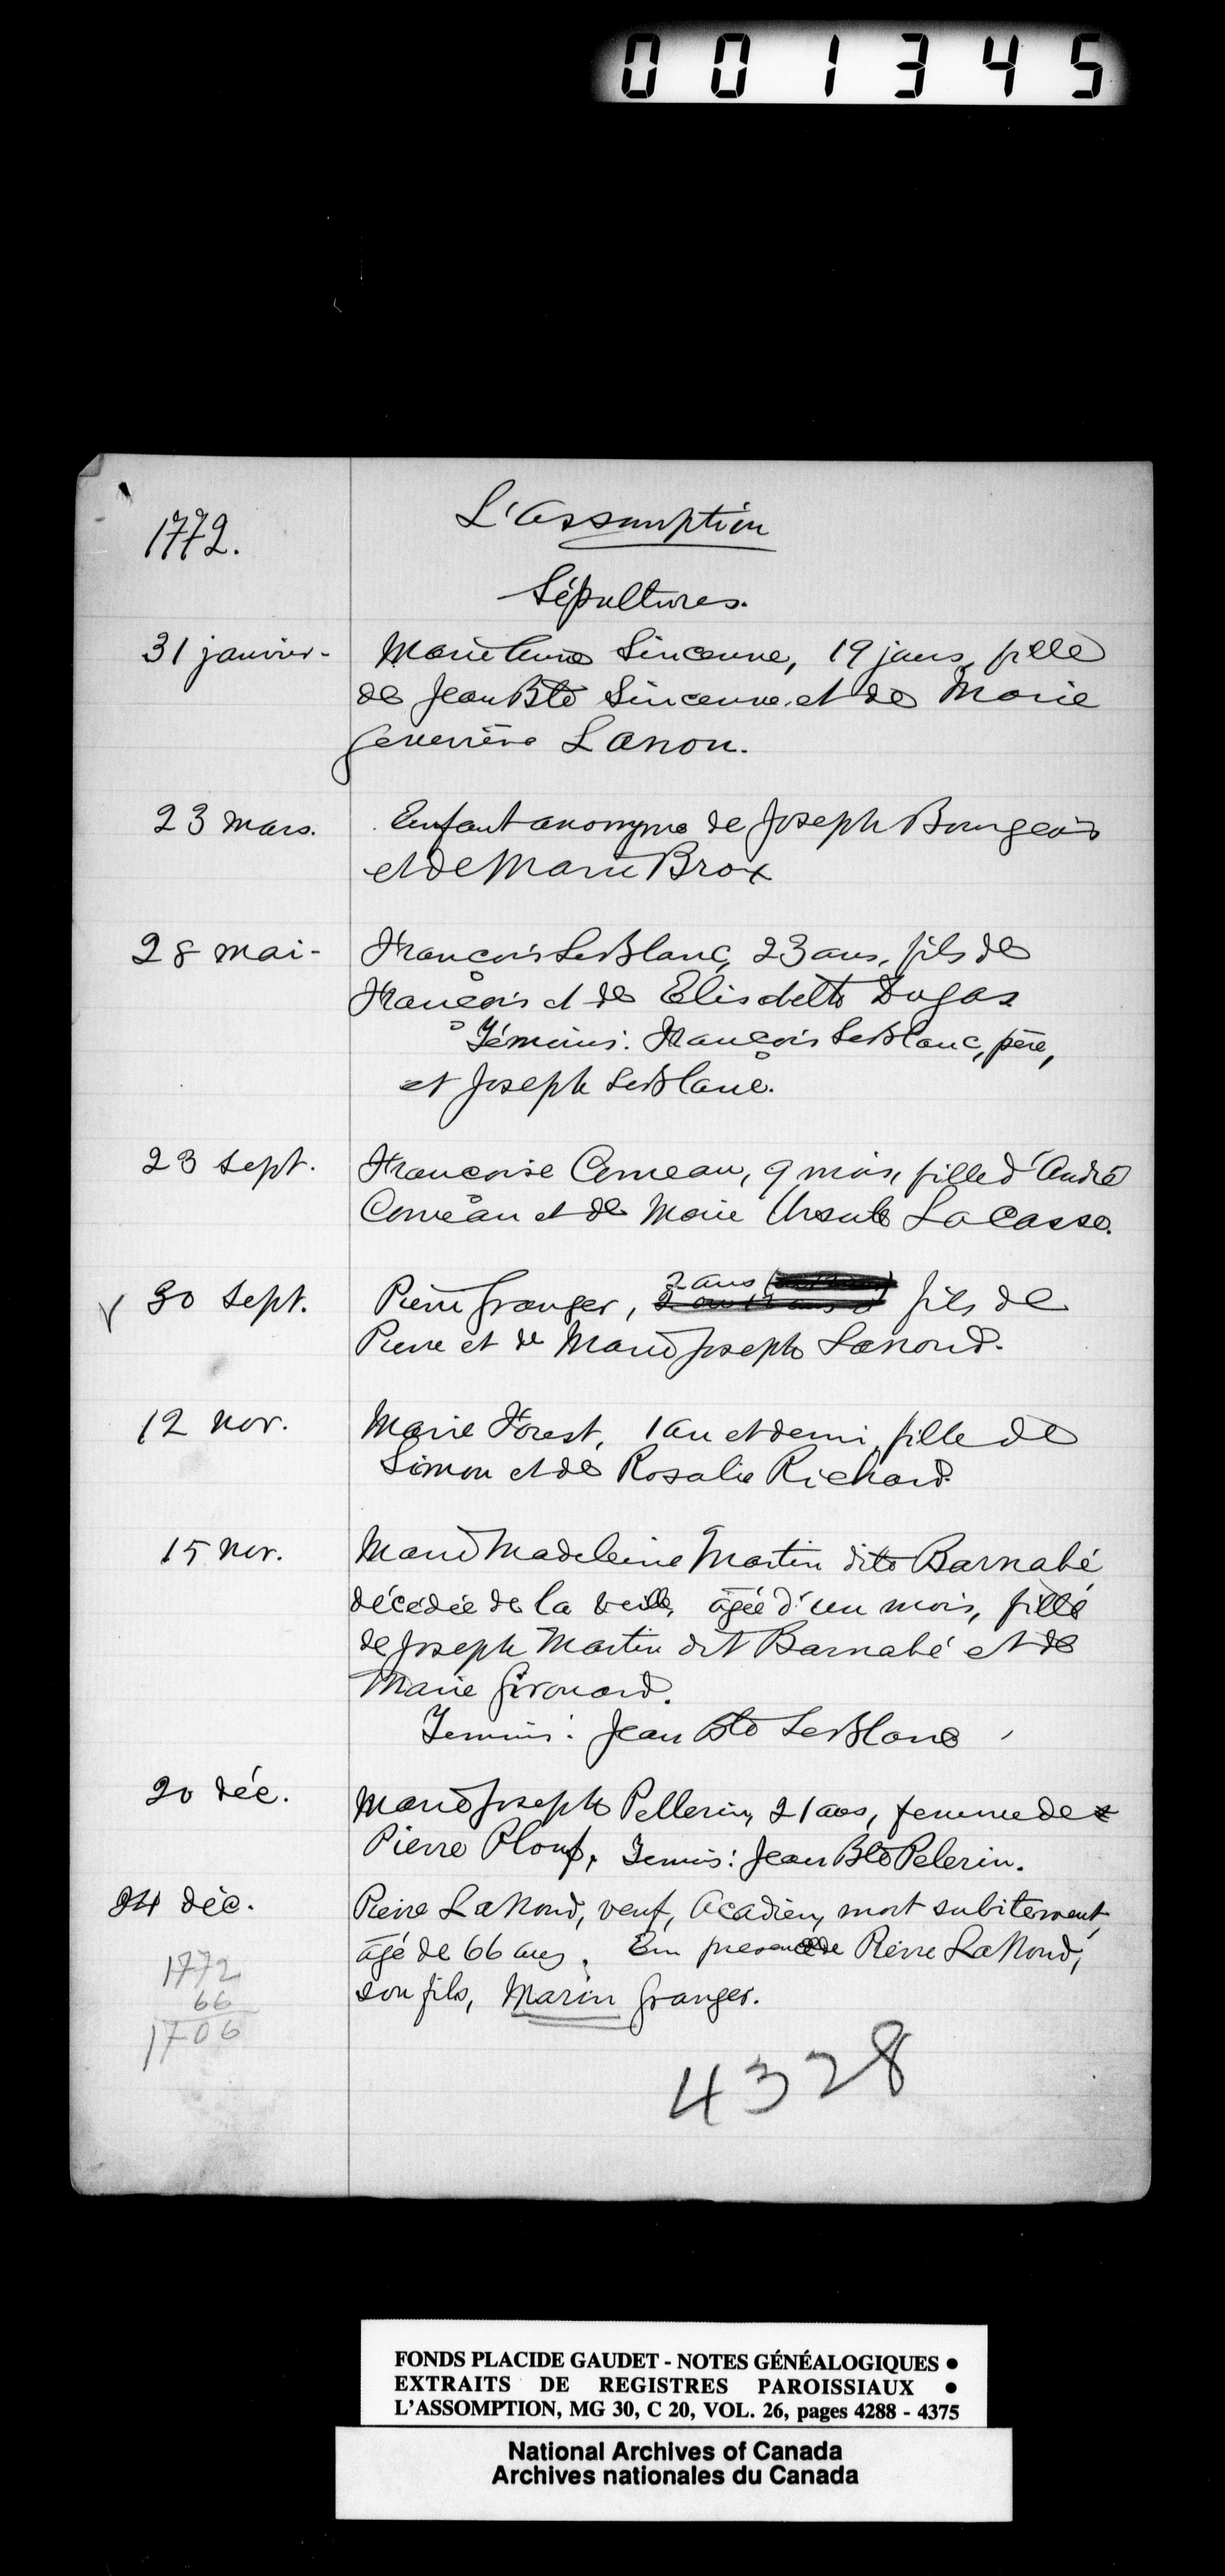 001345
1772.
L'Assomption
Sépultures.
31 janvier - Marie Anne Sincenne, 19 jours, fille
de Jean Bte Sincenne et de Marie
Geneviève Lanon.
23 mars. Enfant anonyme de Joseph Bourgeois
et de Marie Brox
28 mai - François LeBlanc, 23 ans, fils de
François et de Elisabette Dugas
Témoins: François LeBlanc, père,
et Joseph LeBlanc.
23 sept. Françoise Comeau, 9 mois, fille d'André
Comeau et de Marie Ursule LaCasse.
V 30 sept. Pierre Granger, 2 ans fils de
Pierre et de Marie Joseph Lanoue.
12 nov. Marie Forest, 1 an et demi, fille de
Simon et de Rosalie Richard
15 nov. Marie Madeleine Martin dite Barnabé
décédée de la veille, âgée d'un mois, fille
de Joseph Martin dit Barnabé et de
Marie Girouard.
Temoins: Jean Bte LeBlanc
20 déc. Marie Joseph Pellerin, 21 ans, femme de
Pierre Plouf, Temoins: Jean Bte Pelerin.
24 déc. Pierre LaNoue, veuf, Acadien, mort subitement,
âgé de 66 ans. En presence de Pierre LaNoue,
son fils, Marin Granger.
1772
66
1706
4328
FONDS PLACIDE GAUDET - NOTES GÉNÉALOGIQUES ●
EXTRAITS DE REGISTRES PAROISSIAUX ●
L'ASSOMPTION, MG 30, C 20, VOL. 26, pages 4288 - 4375
National Archives of Canada
Archives nationales du Canada